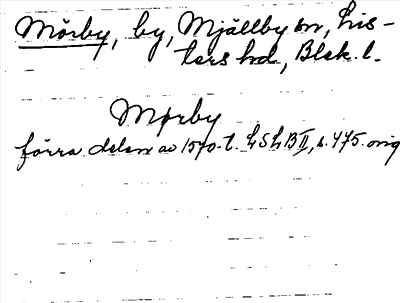 Mörby, by, Mjällby sn, Lis-
ters hd, Blek. l.
Mørby
förra delen av 1570-t. LSLBII, s. 475. orig